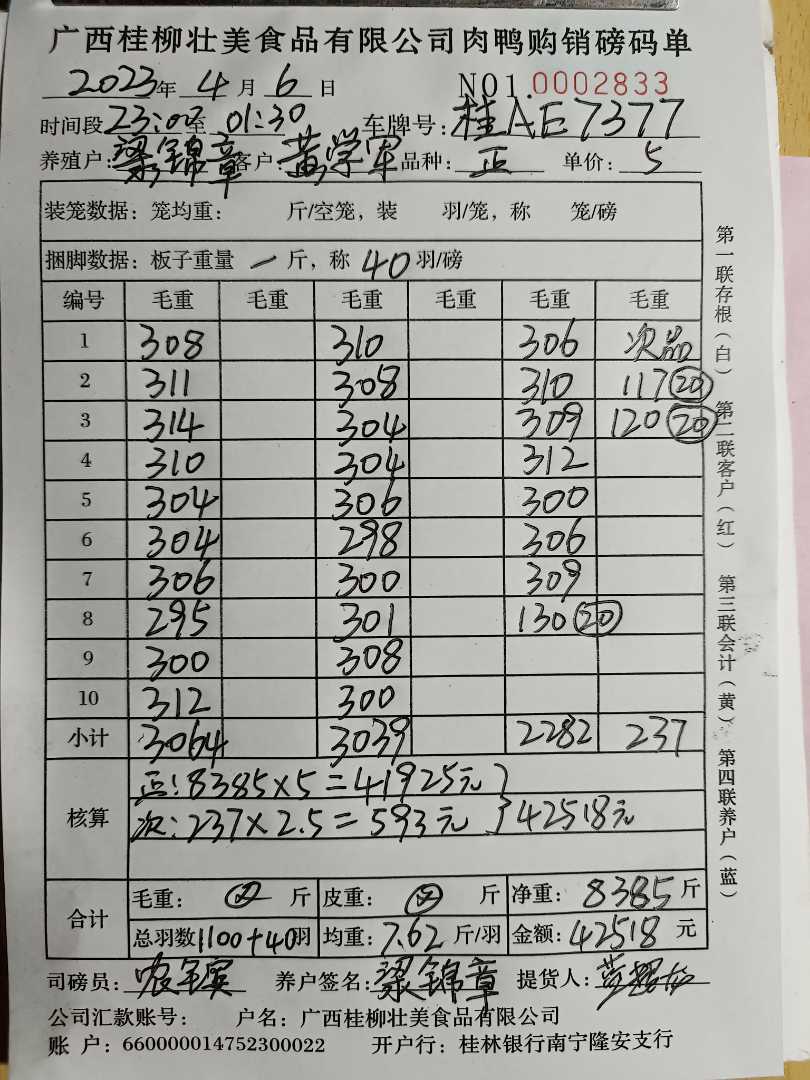 广西桂柳壮美食品有限公司肉鸭购销磅码单
2023年 4 月 6 日 NO1.0002833
时间段 23:00 至 01:30 车牌号: 桂AE7377
养殖户: 梁锦章 客户: 黄学军 品种: 正 单价: 5
装笼数据: 笼均重: 斤/空笼, 装 羽/笼, 称 笼/磅
捆脚数据: 板子重量 一 斤, 称 40 羽/磅
编号 毛重 毛重 毛重 毛重 毛重 毛重
1 308 310 306 次品
2 311 308 310 117 20
3 314 304 309 120 20
4 310 304 312
5 304 306 300
6 304 298 306
7 306 300 309
8 295 301 130 20
9 300 308
10 312 300
小计 3064 3039 2282 237
核算 正:8385×5=41925元
次:237×2.5=593元 } 42518元
合计 毛重: 斤 皮重: 斤 净重: 8385 斤
总羽数 1100+40 羽 均重: 7.62 斤/羽 金额: 42518 元
司磅员: 养户签名: 梁锦章 提货人:
公司汇款账号: 户名: 广西桂柳壮美食品有限公司
账 户: 660000014752300022 开户行: 桂林银行南宁隆安支行
第一联存根(白) 第二联客户(红) 第三联会计(黄) 第四联养户(蓝)